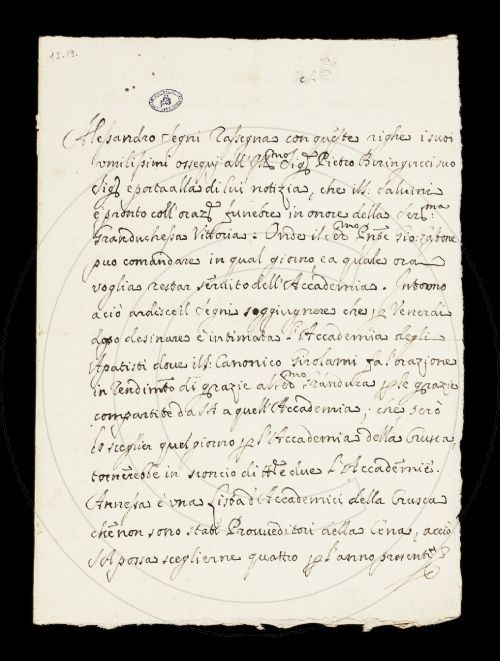 12.19.
Alessandro Segni Rasegna con queste righe i suoi
umilissimi ossequi all'Ill.mo Sig.r Pietro Biringucci suo
Sig.r e porta alla di lui notizia, che il S. Salvini
è pronto coll'oraz.e funebre in onore della Ser.ma
Granduchessa Vittoria: Onde il Ser.mo Pn̄pe Gio: Gastone
può comandare in qual giorno e a quale ora
voglia restar servito dell'Accademia. Intorno
a ciò ardisce il Segni soggiugnere che p Venerdì
dopo desinare è intimata l'Accademia degli
Apatisti dove il S. Canonico Girolami fa l'orazione
in rendim.to di grazie al Ser.mo Granduca p le grazie
compartite da S.A. a quell'Accademia; che però
lo sceglier quel giorno p l'Accademia della Crusca,
tornerebbe in sconcio di tt.e e due l'Accademie.
Annessa è una lista d'Accademici della Crusca
che non sono stati Provveditori della Cena, acciò
S.A. possa sceglierne quattro p l'anno presente